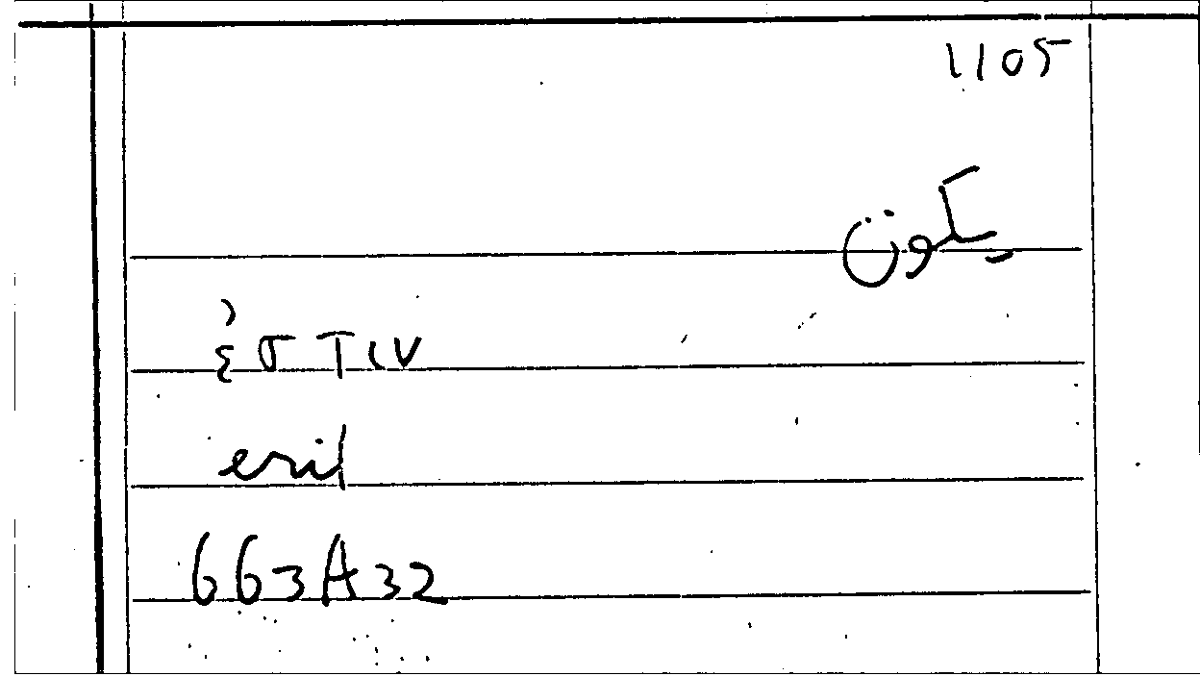 1105
يكون
ἐστιν
erit
663A32